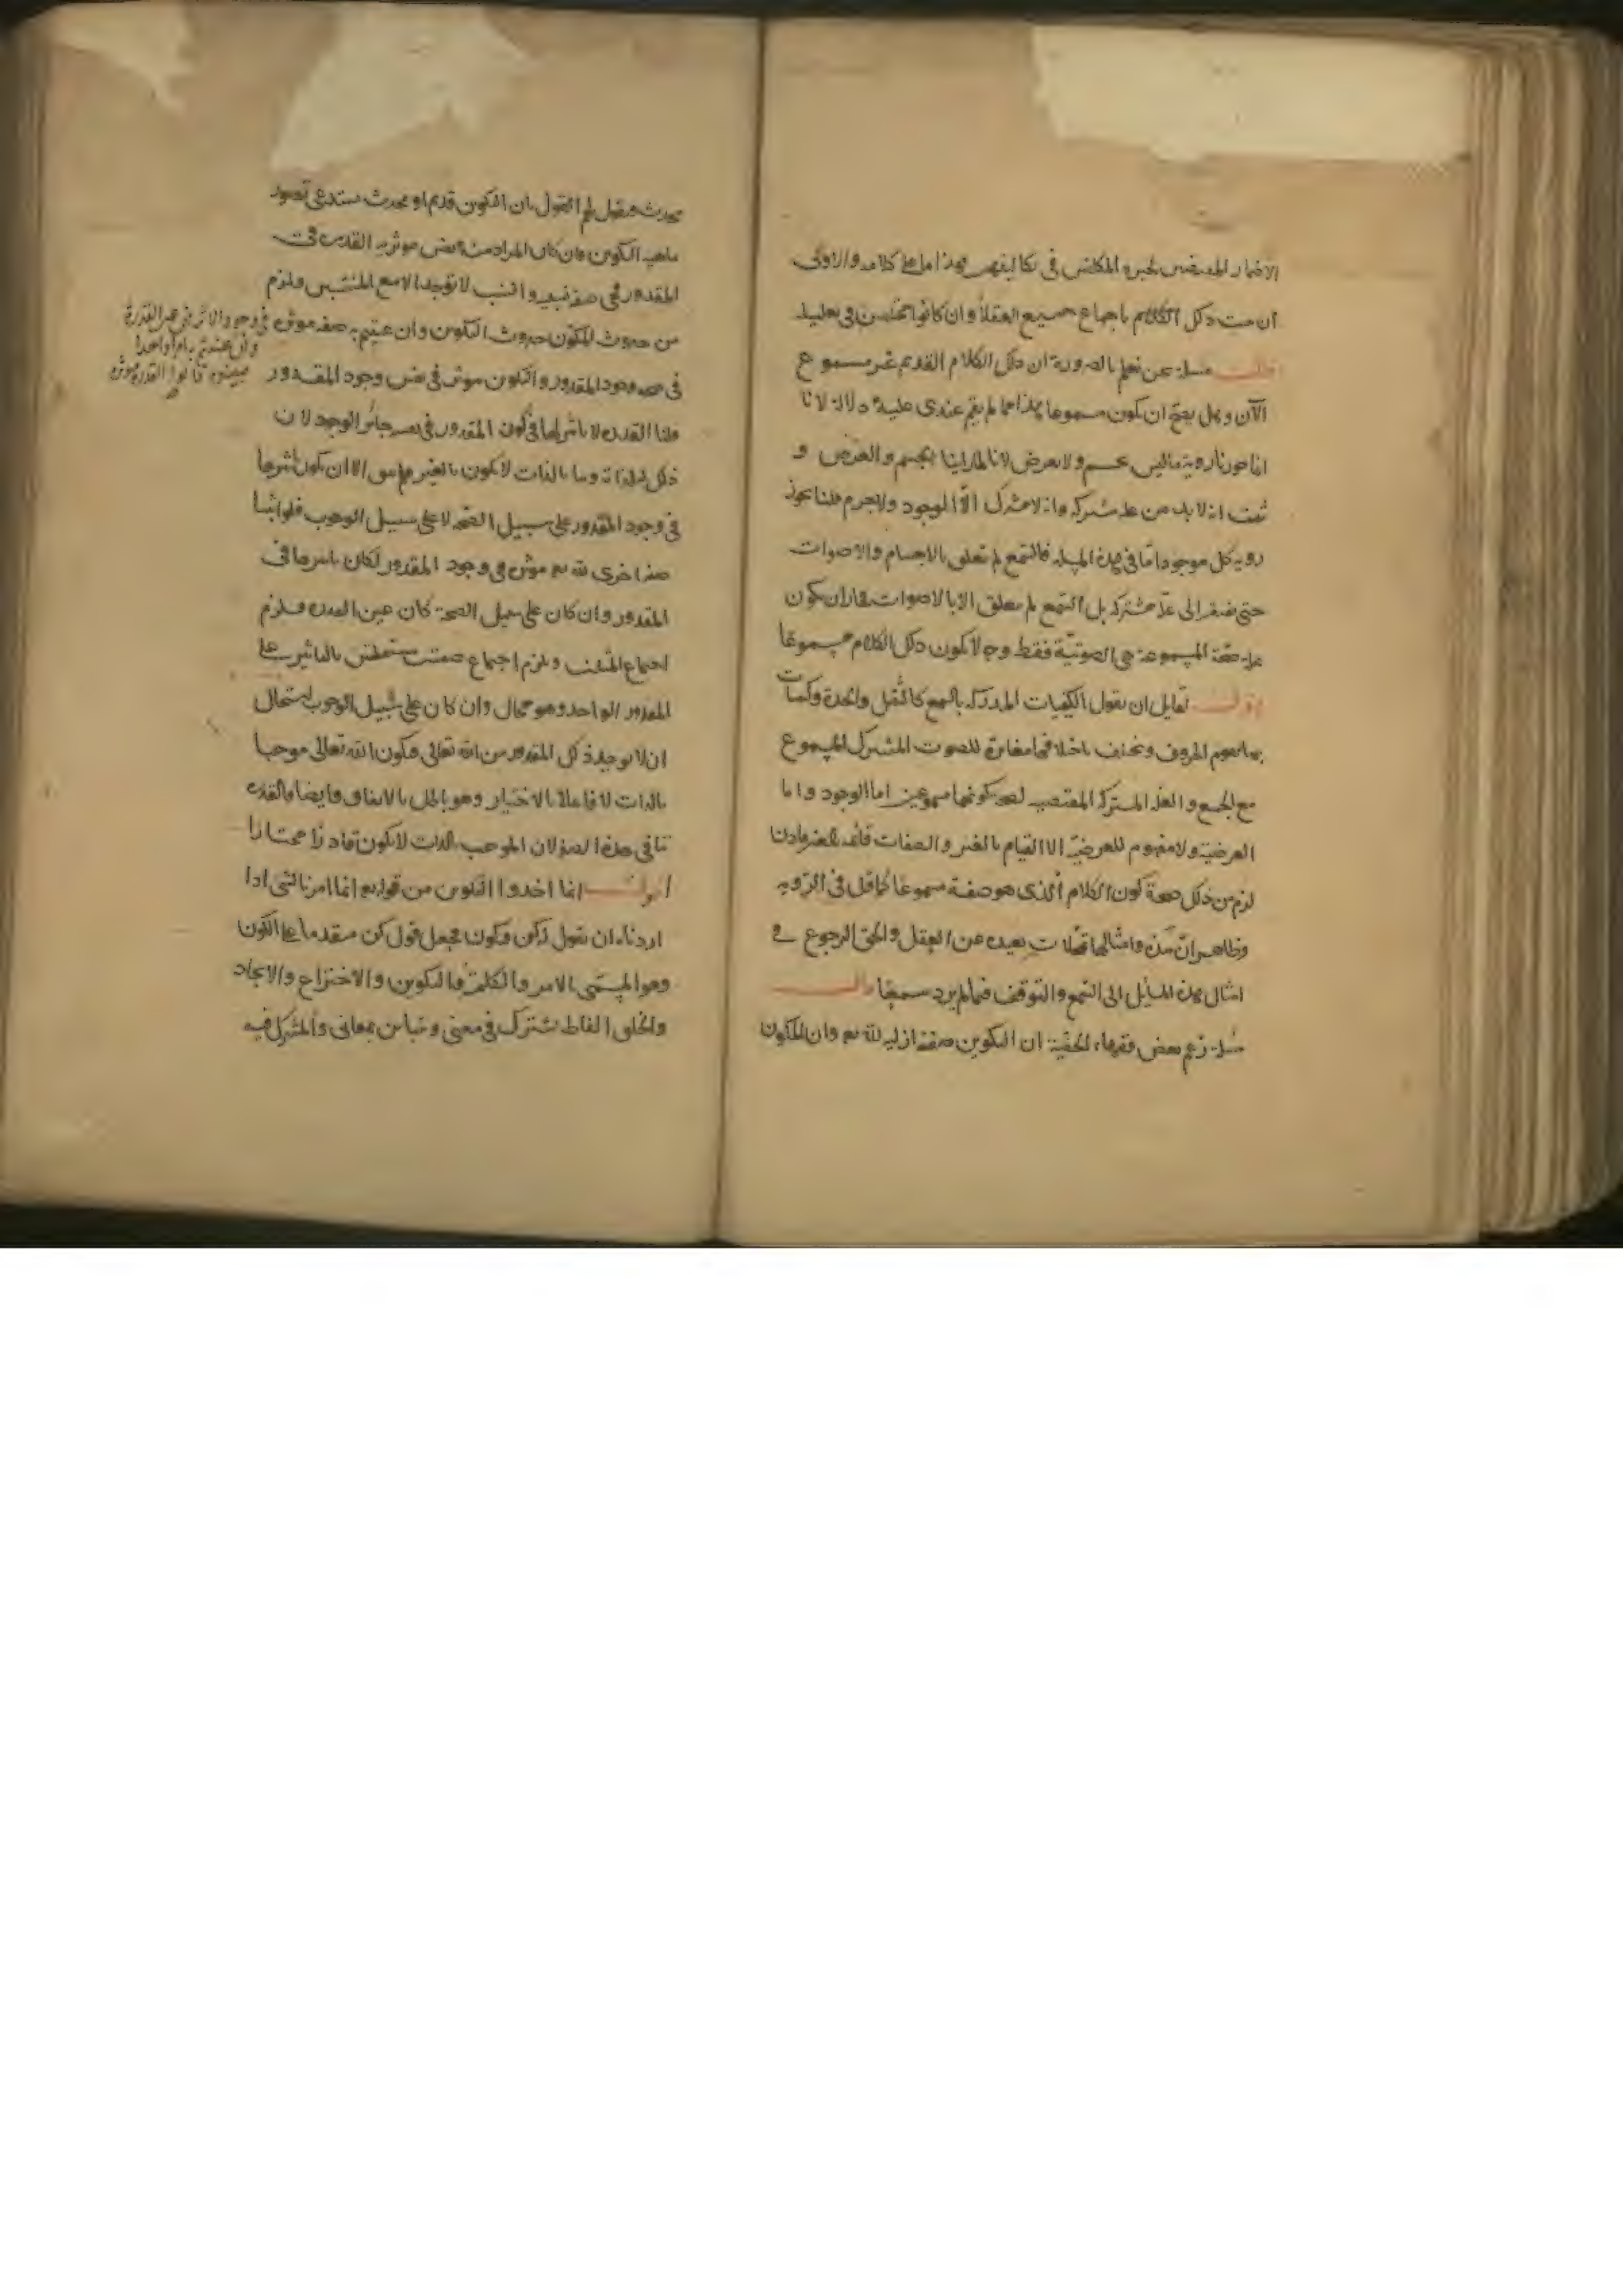 الاخبار المقتضى لخبره المكلفين في تكاليفهم فهذا ما على كلامه والاولى
ان ست ذلك الكلام باجماع جميع العقلاء وان كانوا مختلفين في تعليله
قال مسلة نحن نعلم بالضرورة ان ذلك الكلام القديم غير مسموع
الآن وهل يصح ان يكون مسموعا فهذا مما لم يقم عندي عليه دلالة لانا
انما جوزنا رؤية ما ليس بجسم ولا بعرض لانا لما راينا الجسم والعرض و
ثبت انه لا بد من علة مشتركة وانه لا مشترك الا الموجود ولا جرم قلنا يجوز
رؤية كل موجود اما في هذه المسلة فالسمع لم يتعلق بالاجسام والاصوات
حتى نفتقر الى علة مشتركة بل السمع لم يتعلق الا بالاصوات فجاز ان يكون
علة صحة المسموعية هي الصوتية فقط وح لا يكون ذلك الكلام مسموعا
اقول لقايل ان يقول الكيفيات المدركة بالسمع كالثقل والحدة وكيفيات
بها تقوم الحروف وتختلف باختلافها مغايرة للصوت المشترك المسموع
مع الجميع والعلة المشتركة المقتضية لصحة كونها مسموعين اما الوجود واما
العرضية ولا مفهوم للعرضية الا القيام بالغير والصفات قائمة بالغير فاذن
لزم من ذلك صحة كون الكلام الذي هو صفة مسموعا كما قيل في الرؤية
وظاهر ان هذه وامثالها تمحلات بعيدة عن العقل والحق الرجوع في
امثال هذه المسايل الى السمع والتوقف فيما لم يرد سمعيا قال
مسلة زعم بعض فقهاء الحنفية ان التكوين صفة ازلية لله تعم وان المكون
محدث فنقول لهم القول بان التكوين قديم او محدث يستدعي تصور
ماهية التكوين فان كان المراد منه نفس موثرية القدرة في
المقدور فهي صفة نسبية والنسب لا توجد الا مع المنتسبين فلزم
من حدوث المكون حدوث التكوين وان عنيتم به صفة موثرة
في وجود الاثر فهي عين القدرة
وان عنيتم به امرا اخر
فبينوه قالوا القدرة موثرة
في صحة وجود المقدور والتكوين موثر في نفس وجود المقدور
قلنا القدرة لا تاثير لها في كون المقدور في نفسه جائز الوجود لان
ذلك له لذاته وما بالذات لا يكون بالغير فلم يبق الا ان يكون تاثيرها
في وجود المقدور على سبيل الصحة لا على سبيل الوجوب فلو اثبتنا
صفة اخرى لله تعم موثرة في وجود المقدور لكان تاثيرها في
المقدور وان كان على سبيل الصحة كان عين القدرة فلزم
اجتماع المثلين ويلزم اجتماع صفتين مستقلتين بالتاثير على
المقدور الواحد وهو محال وان كان على سبيل الوجوب استحال
ان لا يوجد ذلك المقدور من الله تعالى فيكون الله تعالى موجبا
بالذات لا فاعلا بالاختيار وهو باطل بالاتفاق وايضا فالقدرة
تنافي هذه الصفة لان الموجب بالذات لا يكون قادرا مختارا
اقول انما اخذوا التكوين من قوله تعم انما امرنا لشى اذا
اردناه ان نقول له كن فيكون فجعل قول كن متقدما على الكون
وهو المسمى بالامر والكلمة والتكوين والاختراع والايجاد
والخلق الفاظ تشترك في معنى وتتباين بمعاني والمشترك فيه